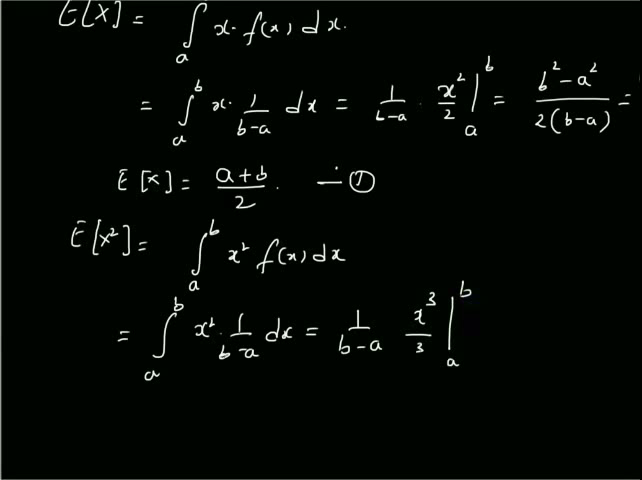 E[X] = ∫_a x. f(x) dx.
= ∫_a^b x. 1/(b-a) dx = 1/(b-a) . x²/2 |_a^b = (b²-a²)/(2(b-a)) =
E[X] = (a+b)/2. — ①
E[X²] = ∫_a^b x² f(x) dx
= ∫_a^b x². 1/(b-a) dx = 1/(b-a) x³/3 |_a^b